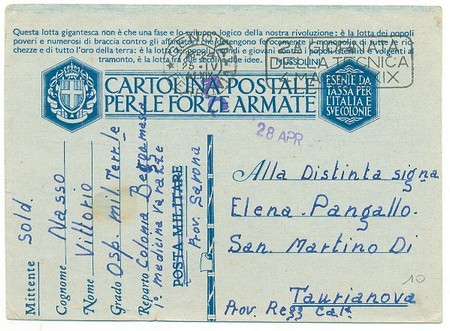 Questa lotta gigantesca non è che una fase e lo sviluppo logico della nostra rivoluzione: è la lotta dei popoli
poveri e numerosi di braccia contro gli affamatori che detengono ferocemente il monopolio di tutte le ric-
chezze e di tutto l'oro della terra: è la lotta dei popoli fecondi e giovani contro i popoli isteriliti e volgenti al
tramonto, è la lotta fra due secoli e due idee.
MUSSOLINI
2ª GIORNATA
DELLA TECNICA
4 MAGGIO XIX
CARTOLINA POSTALE
PER LE FORZE ARMATE
ESENTE DA
TASSA PER
L'ITALIA E
SVE COLONIE
28 APR
Mittente Sold.
Cognome Nasso
Nome Vittorio
Grado Osp. mil. Terr.le
Reparto Colonia Bergamasca
1º medicina Varazze
POSTA MILITARE
Prov. Savona
Alla Distinta Signa
Elena Pangallo
San Martino Di
Taurianova
Prov. Regg Cala
10